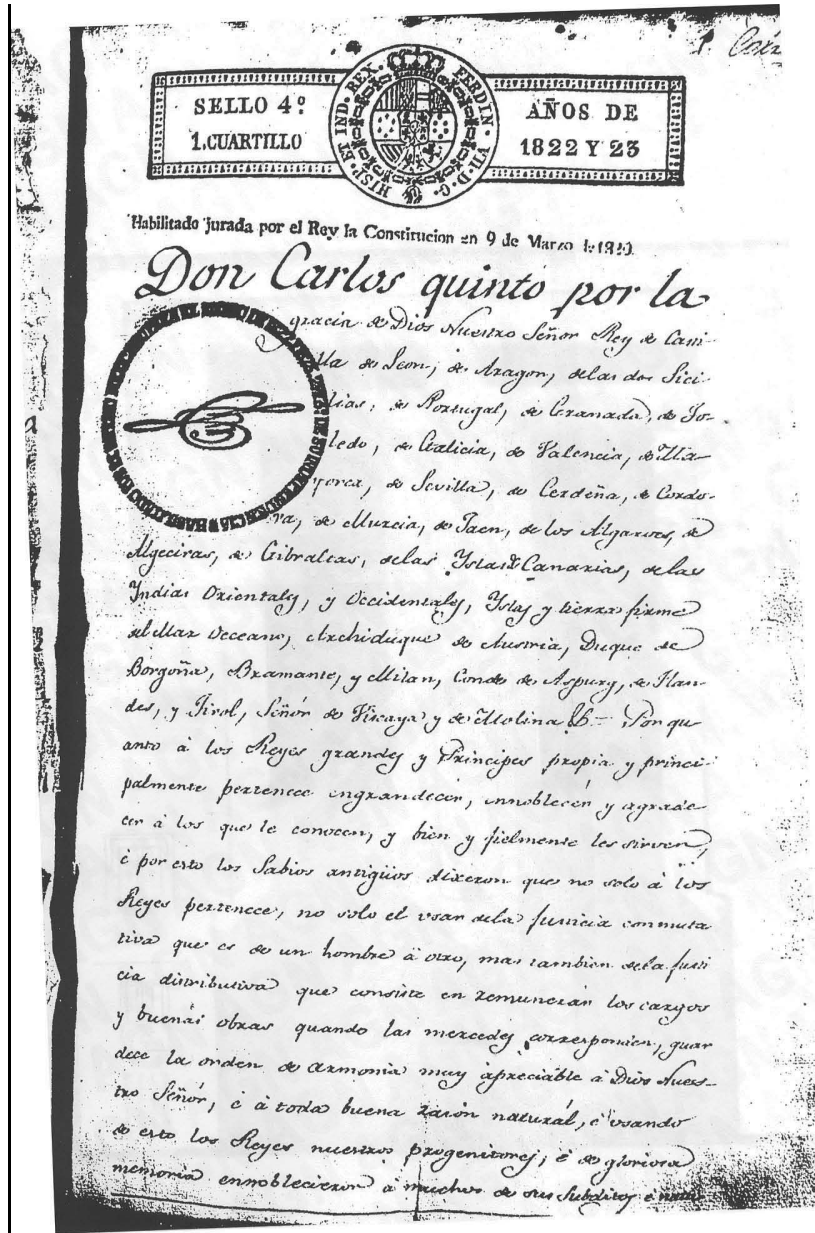 SELLO 4º
1.CUARTILLO
HISP. ET IND. REX. FERDIN. VII. D. G.
AÑOS DE
1822 Y 23
Habilitado jurada por el Rey la Constitucion en 9 de Marzo de 1820.
Don Carlos quinto por la
gracia de Dios Nuestro Señor Rey de Casti-
lla de Leon, de Aragon, delas dos Sici-
lias, de Portugal, de Granada, de To-
ledo, de Galicia, de Valencia, de Ma-
yorca, de Sevilla, de Cerdeña, de Cordo-
va, de Murcia, de Jaen, de los Algarves, de
Algeciras, de Gibraltar, delas Yslas Canarias, delas
Yndias Orientales, y Occidentales, Yslas y tierra firme
del Mar Occeano, Archiduque de Austria, Duque de
Borgoña, Bramante, y Milan, Conde de Aspurg, de Flan-
des, y Tirol, Señor de Viscaya y de Molina &= Por qu
anto à los Reyes grandes y Principes propia y princi-
palmente pertenece engrandecer, ennoblecer y agrade-
cer à los que le conocen, y bien y fielmente les sirven,
é por esto los Sabios antigüos dixeron que no solo à los
Reyes pertenece, no solo el usar dela Justicia conmuta
tiva que es de un hombre à otro, mas tambien dela Justi
cia distributiva que consiste en remunerar los cargos
y buenas obras quando las mercedes corresponden, guar
dece la orden de armonia muy apreciable à Dios Nues-
tro Señor, é à toda buena razón naturál, é usando
de esto los Reyes nuestros progenitores, é de gloriosa
memoria ennoblecieron à muchos de sus Subditos é